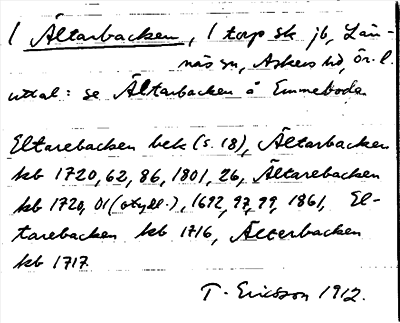 1 Ältarbacken, 1 torp sk jb, Län-
näs sn, Askers hd, Ör. l.
uttal: se Ältarbacken å Emmeboda
Eltarebacken bek (s. 18), Ältarbacken
kb 1720, 62, 86, 1801, 26, Ältarebacken
kb 1720, 01 (otyll.), 1692, 97, 99, 1861, El-
tarebacken kb 1716, Älterbacken
kb 1717.
T. Ericsson 1912.